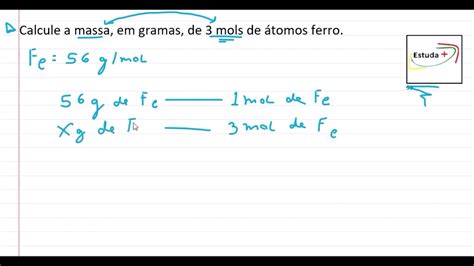 Calcule a massa, em gramas, de 3 mols de átomos ferro.
Estuda +
Fe = 56 g/mol
56g de Fe —— 1mol de Fe
Xg de F —— 3 mol de Fe